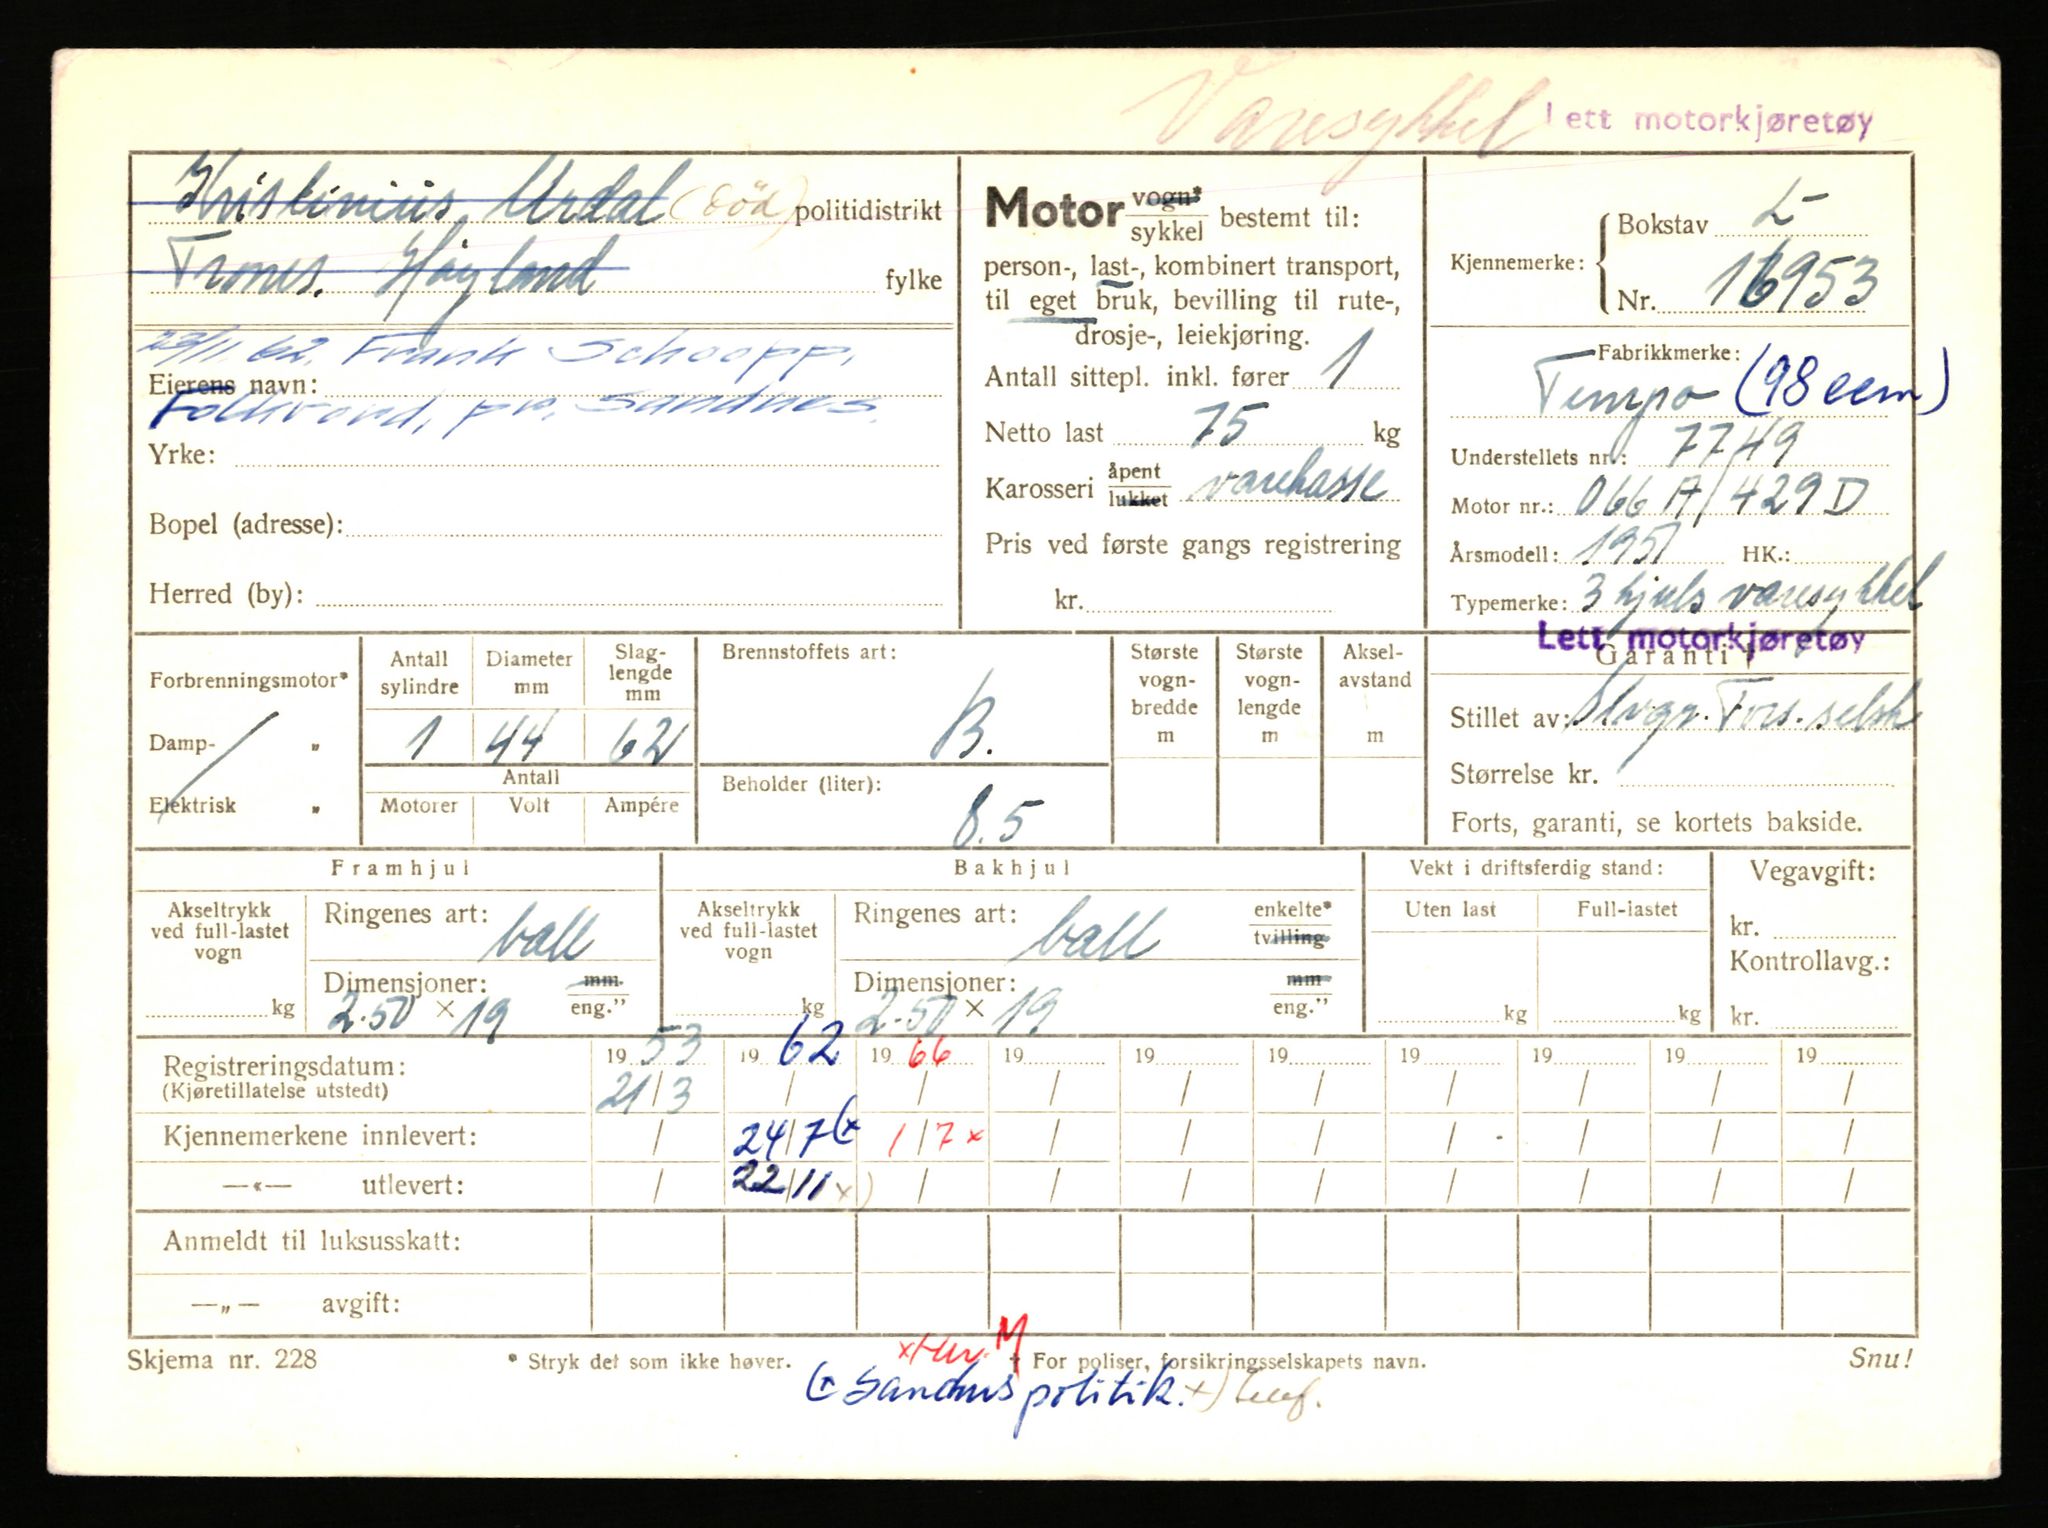 Varesykkel Lett motorkjøretøy
Kristinius Urdal (død) politidistrikt
Trones. Høyland fylke
23/11.62. Frank Schoopp,
Eierens navn:
Folkvord, pr. Sandnes.
Yrke:
Bopel (adresse):
Herred (by):
Motor vogn* / sykkel bestemt til:
person-, last-, kombinert transport,
til eget bruk, bevilling til rute-,
drosje-, leiekjøring.
Antall sittepl. inkl. fører 1
Netto last 75 kg
Karosseri åpent / lukket varekasse
Pris ved første gangs registrering
kr.
Kjennemerke: Bokstav L-
Nr. 16953
Fabrikkmerke:
Tempo (98 ccm)
Understellets nr.: 7749
Motor nr.: 066 A/429 D
Årsmodell: 1951 HK.:
Typemerke: 3 hjuls varesykkel
Lett motorkjøretøy
Garanti †
Stillet av: Fors. selsk
Størrelse kr.
Forts, garanti, se kortets bakside.
Forbrenningsmotor*
Damp- „
Elektrisk „
Antall sylindre Diameter mm Slaglengde mm
1 44 62
Antall
Motorer Volt Ampére
Brennstoffets art:
B.
Beholder (liter):
8.5
Største vognbredde m
Største vognlengde m
Akselavstand m
Framhjul
Akseltrykk ved full-lastet vogn
kg
Ringenes art: ball
Dimensjoner: mm. / eng."
2.50 × 19
Bakhjul
Akseltrykk ved full-lastet vogn
kg
Ringenes art: ball enkelte* / tvilling
Dimensjoner: mm / eng."
2.50 × 19
Vekt i driftsferdig stand:
Uten last Full-lastet
kg kg
Vegavgift:
kr.
Kontrollavg.:
kr.
Registreringsdatum: 19 53 19 62 19 66 19 19 19 19 19 19 19
(Kjøretillatelse utstedt) 21/3 / / / / / / / / /
Kjennemerkene innlevert: / 24/7 (x 1/7 x / / / / / / /
—«— utlevert: / 22/11 x) / / / / / / / /
Anmeldt til luksusskatt:
—„— avgift:
Skjema nr. 228 * Stryk det som ikke høver. † For poliser, forsikringsselskapets navn. Snu!
M
(x Sandnes politik. x)